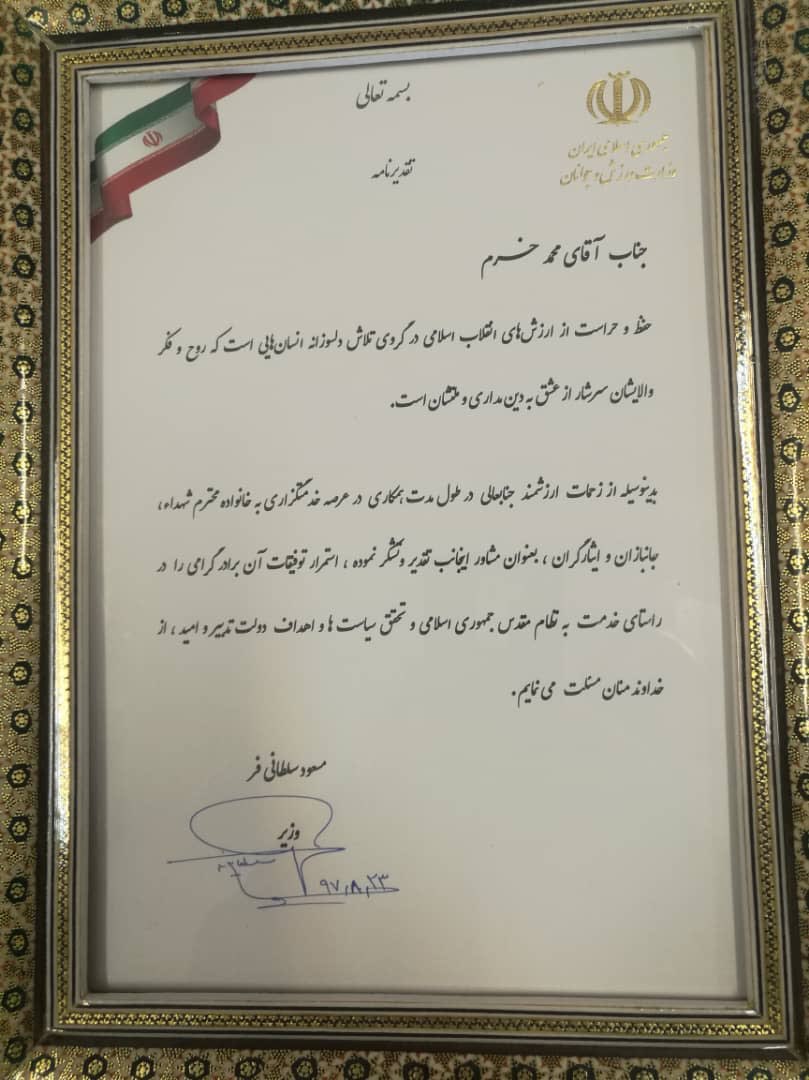 بسمه تعالی
جمهوری اسلامی ایران
وزارت ورزش و جوانان
تقدیرنامه
جناب آقای محمد خرم
حفظ و حراست از ارزش‌های انقلاب اسلامی در گروی تلاش دلسوزانه انسان‌هایی است که روح و فکر
والایشان سرشار از عشق به دین مداری و ملتشان است.
بدینوسیله از زحمات ارزشمند جنابعالی در طول مدت همکاری در عرصه خدمتگزاری به خانواده محترم شهداء،
جانبازان و ایثارگران ، بعنوان مشاور اینجانب تقدیر و تشکر نموده ، استمرار توفیقات آن برادر گرامی را در
راستای خدمت به نظام مقدس جمهوری اسلامی و تحقق سیاست ها و اهداف دولت تدبیر و امید ، از
خداوند منان مسئلت می نمایم.
مسعود سلطانی فر
وزیر
۹۷,۸,۲۳